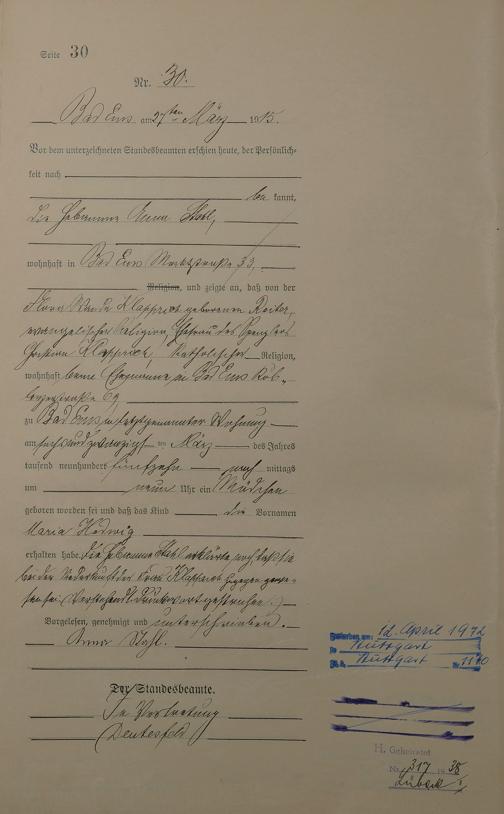 Seite 30
Nr. 30.
Bad Ems am 27ten März 1915.
Vor dem unterzeichneten Standesbeamten erschien heute, der Persönlich-
keit nach
be kannt,
die Hebamme Anna Stahl,
wohnhaft in Bad Ems Marktstraße 33,
Religion, und zeigte an, daß von der
Klapprot geborenen Reiter,
evangelischer Religion, Ehefrau des Spenglers
Christian Klapprot, katholischer Religion,
wohnhaft beim Ehemanne in Bad Ems
straße 69,
zu Bad Ems in letztgenannter Wohnung
am sechsundzwanzigsten März des Jahres
tausend neunhundert fünfzehn nach mittags
um neun Uhr ein Mädchen
geboren worden sei und daß das Kind die Vornamen
Maria Hedwig
erhalten habe. Die Hebamme Stahl erklärte noch daß sie
bei der Niederkunft der Frau Klapprot zugegen gewe-
sen sei.
Vorgelesen, genehmigt und unterschrieben.
Anna Stahl.
Der Standesbeamte.
In Vertretung
Gestorben am: 12. April 1972
in Stuttgart
St. A. Stuttgart Nr. 1170
H. Geheiratet
Nr. 317 19 38
Lübeck I